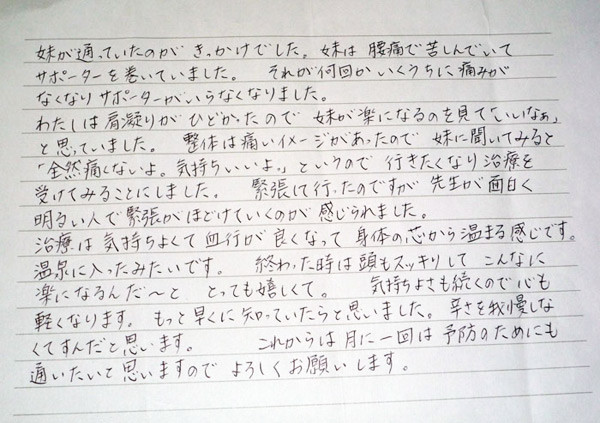 妹が通っていたのがきっかけでした。妹は腰痛で苦しんでいて
サポーターを巻いていました。 それが何回かいくうちに痛みが
なくなりサポーターがいらなくなりました。
わたしは肩凝りがひどかったので 妹が楽になるのを見て「いいなぁ」
と思っていました。 整体は痛いイメージがあったので 妹に聞いてみると
「全然痛くないよ。気持ちいいよ。」というので 行きたくなり治療を
受けてみることにしました。 緊張して行ったのですが 先生が面白く
明るい人で緊張がほどけていくのが 感じられました。
治療は気持ちよくて血行が良くなって 身体の芯から温まる感じです。
温泉に入ったみたいです。 終わった時は頭もスッキリして こんなに
楽になるんだ〜と とっても嬉しくて。 気持ちよさも続くので心も
軽くなります。もっと早くに知っていたらと思いました。辛さを我慢しな
くてすんだと思います。 これからは月に一回は 予防のためにも
通いたいと思いますので よろしくお願いします。